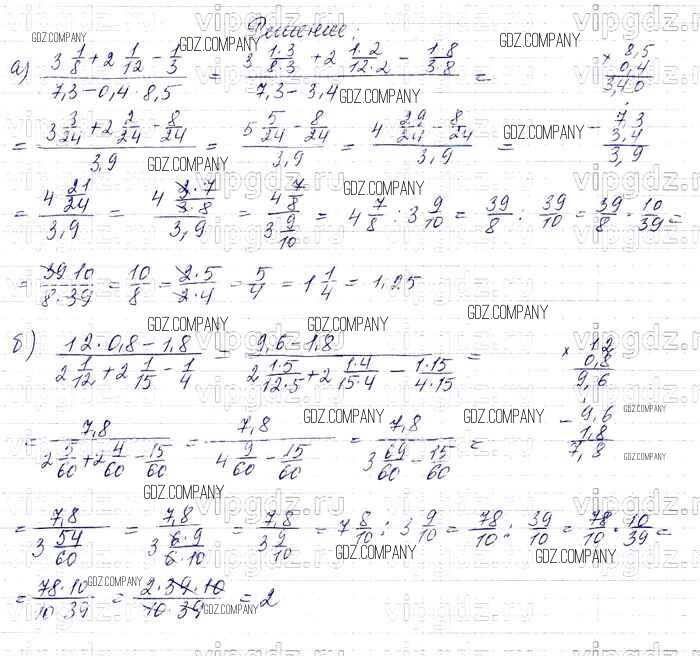 Решение:
а) (3 1/8 + 2 1/12 − 1/3)/(7,3 − 0,4 · 8,5) = (3 1·3/8·3 + 2 1·2/12·2 − 1·8/3·8)/(7,3 − 3,4) =
× 8,5
0,4
3,40
= (3 3/24 + 2 2/24 − 8/24)/3,9 = (5 5/24 − 8/24)/3,9 = (4 29/24 − 8/24)/3,9 =
− 7,3
3,4
3,9
= (4 21/24)/3,9 = (4 3·7/3·8)/3,9 = (4 7/8)/(3 9/10) = 4 7/8 : 3 9/10 = 39/8 : 39/10 = 39/8 · 10/39 =
= 39·10/8·39 = 10/8 = 2·5/2·4 = 5/4 = 1 1/4 = 1,25
б) (12 · 0,8 − 1,8)/(2 1/12 + 2 1/15 − 1/4) = (9,6 − 1,8)/(2 1·5/12·5 + 2 1·4/15·4 − 1·15/4·15) =
× 12
0,8
9,6
= 7,8/(2 5/60 + 2 4/60 − 15/60) = 7,8/(4 9/60 − 15/60) = 7,8/(3 69/60 − 15/60) =
− 9,6
1,8
7,8
= 7,8/(3 54/60) = 7,8/(3 6·9/6·10) = 7,8/(3 9/10) = 7 8/10 : 3 9/10 = 78/10 : 39/10 = 78/10 · 10/39 =
= 78·10/10·39 = 2·39·10/10·39 = 2
GDZ.COMPANY
vipgdz.ru